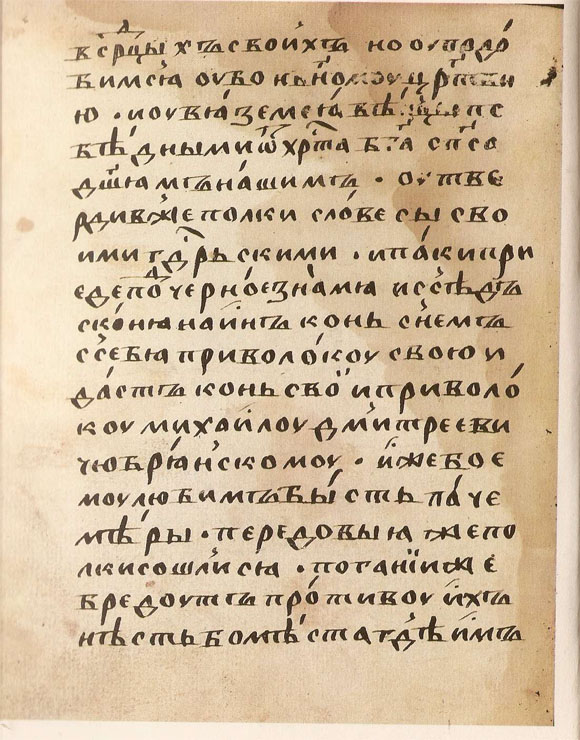 в срдцыхъ своихъ но оуподо
бимсѧ оубо к
ю · и оувѧземсѧ
бѣдными ѿ хрⷭта бг҃а спⷭсо
дш҃амъ нашимъ · оутве
рдивже полки словесы сво
ими гдⷭрьскими · и паки при
еде поⷣ черное знамѧ и ссѣдъ
с конѧ на инъ конь с немъ
с себѧ приволокоу свою и
дастъ конь своі и приволо
коу михаилоу дмитрееви
чю брѧнскомоу · иже бо е
моу любимъ бысть паче
мѣры · передовыꙗ же по
лки сошлисѧ · поганїи же
бредоутъ противоу ихъ
нѣсть бо мѣста гдѣ имъ